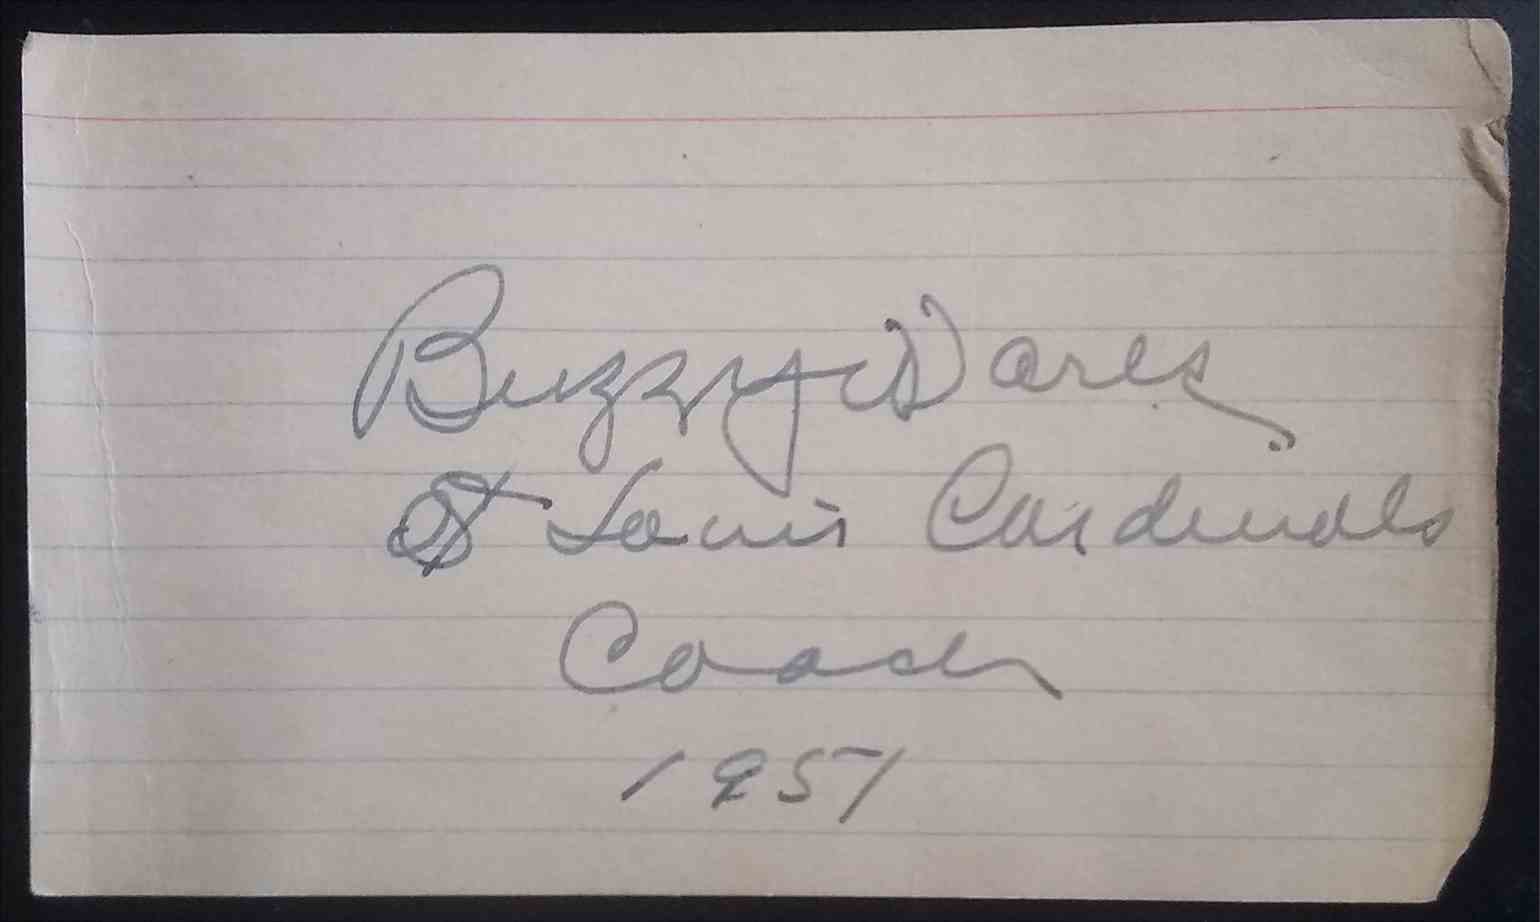 Buzzy Wares
St Louis Cardinals
Coach
1951